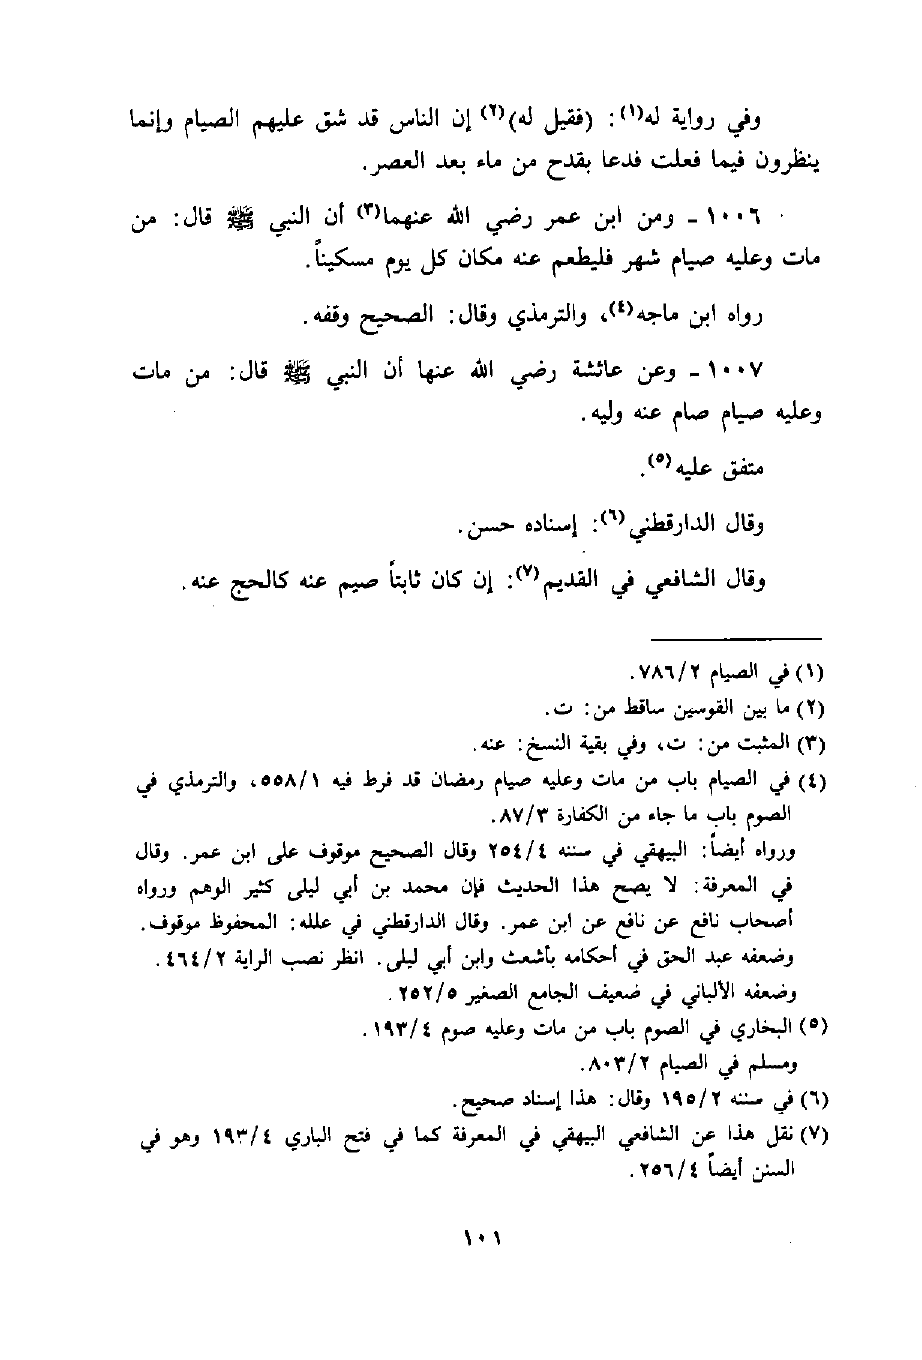 وفي رواية له(١): (فقيل له)(٢) إن الناس قد شق عليهم الصيام وإنما
ينظرون فيما فعلت فدعا بقدح من ماء بعد العصر.
١٠٠٦ - ومن ابن عمر رضي الله عنهما(٣) أن النبي ﷺ قال: من
مات وعليه صيام شهر فليطعم عنه مكان كل يوم مسكيناً.
رواه ابن ماجه(٤)، والترمذي وقال: الصحيح وقفه.
١٠٠٧ - وعن عائشة رضي الله عنها أن النبي ﷺ قال: من مات
وعليه صيام صام عنه وليه.
متفق عليه(٥).
وقال الدارقطني(٦): إسناده حسن.
وقال الشافعي في القديم(٧): إن كان ثابتاً صيم عنه كالحج عنه.
(١) في الصيام ٧٨٦/٢.
(٢) ما بين القوسين ساقط من: ت.
(٣) المثبت من: ت، وفي بقية النسخ: عنه.
(٤) في الصيام باب من مات وعليه صيام رمضان قد فرط فيه ٥٥٨/١، والترمذي في
الصوم باب ما جاء من الكفارة ٨٧/٣.
ورواه أيضاً: البيهقي في سننه ٢٥٤/٤ وقال الصحيح موقوف على ابن عمر. وقال
في المعرفة: لا يصح هذا الحديث فإن محمد بن أبي ليلى كثير الوهم ورواه
أصحاب نافع عن نافع عن ابن عمر. وقال الدارقطني في علله: المحفوظ موقوف.
وضعفه عبد الحق في أحكامه بأشعث وابن أبي ليلى. انظر نصب الراية ٤٦٤/٢.
وضعفه الألباني في ضعيف الجامع الصغير ٢٥٢/٥.
(٥) البخاري في الصوم باب من مات وعليه صوم ١٩٣/٤.
ومسلم في الصيام ٨٠٣/٢.
(٦) في سننه ١٩٥/٢ وقال: هذا إسناد صحيح.
(٧) نقل هذا عن الشافعي البيهقي في المعرفة كما في فتح الباري ١٩٣/٤ وهو في
السنن أيضاً ٢٥٦/٤.
١٠١